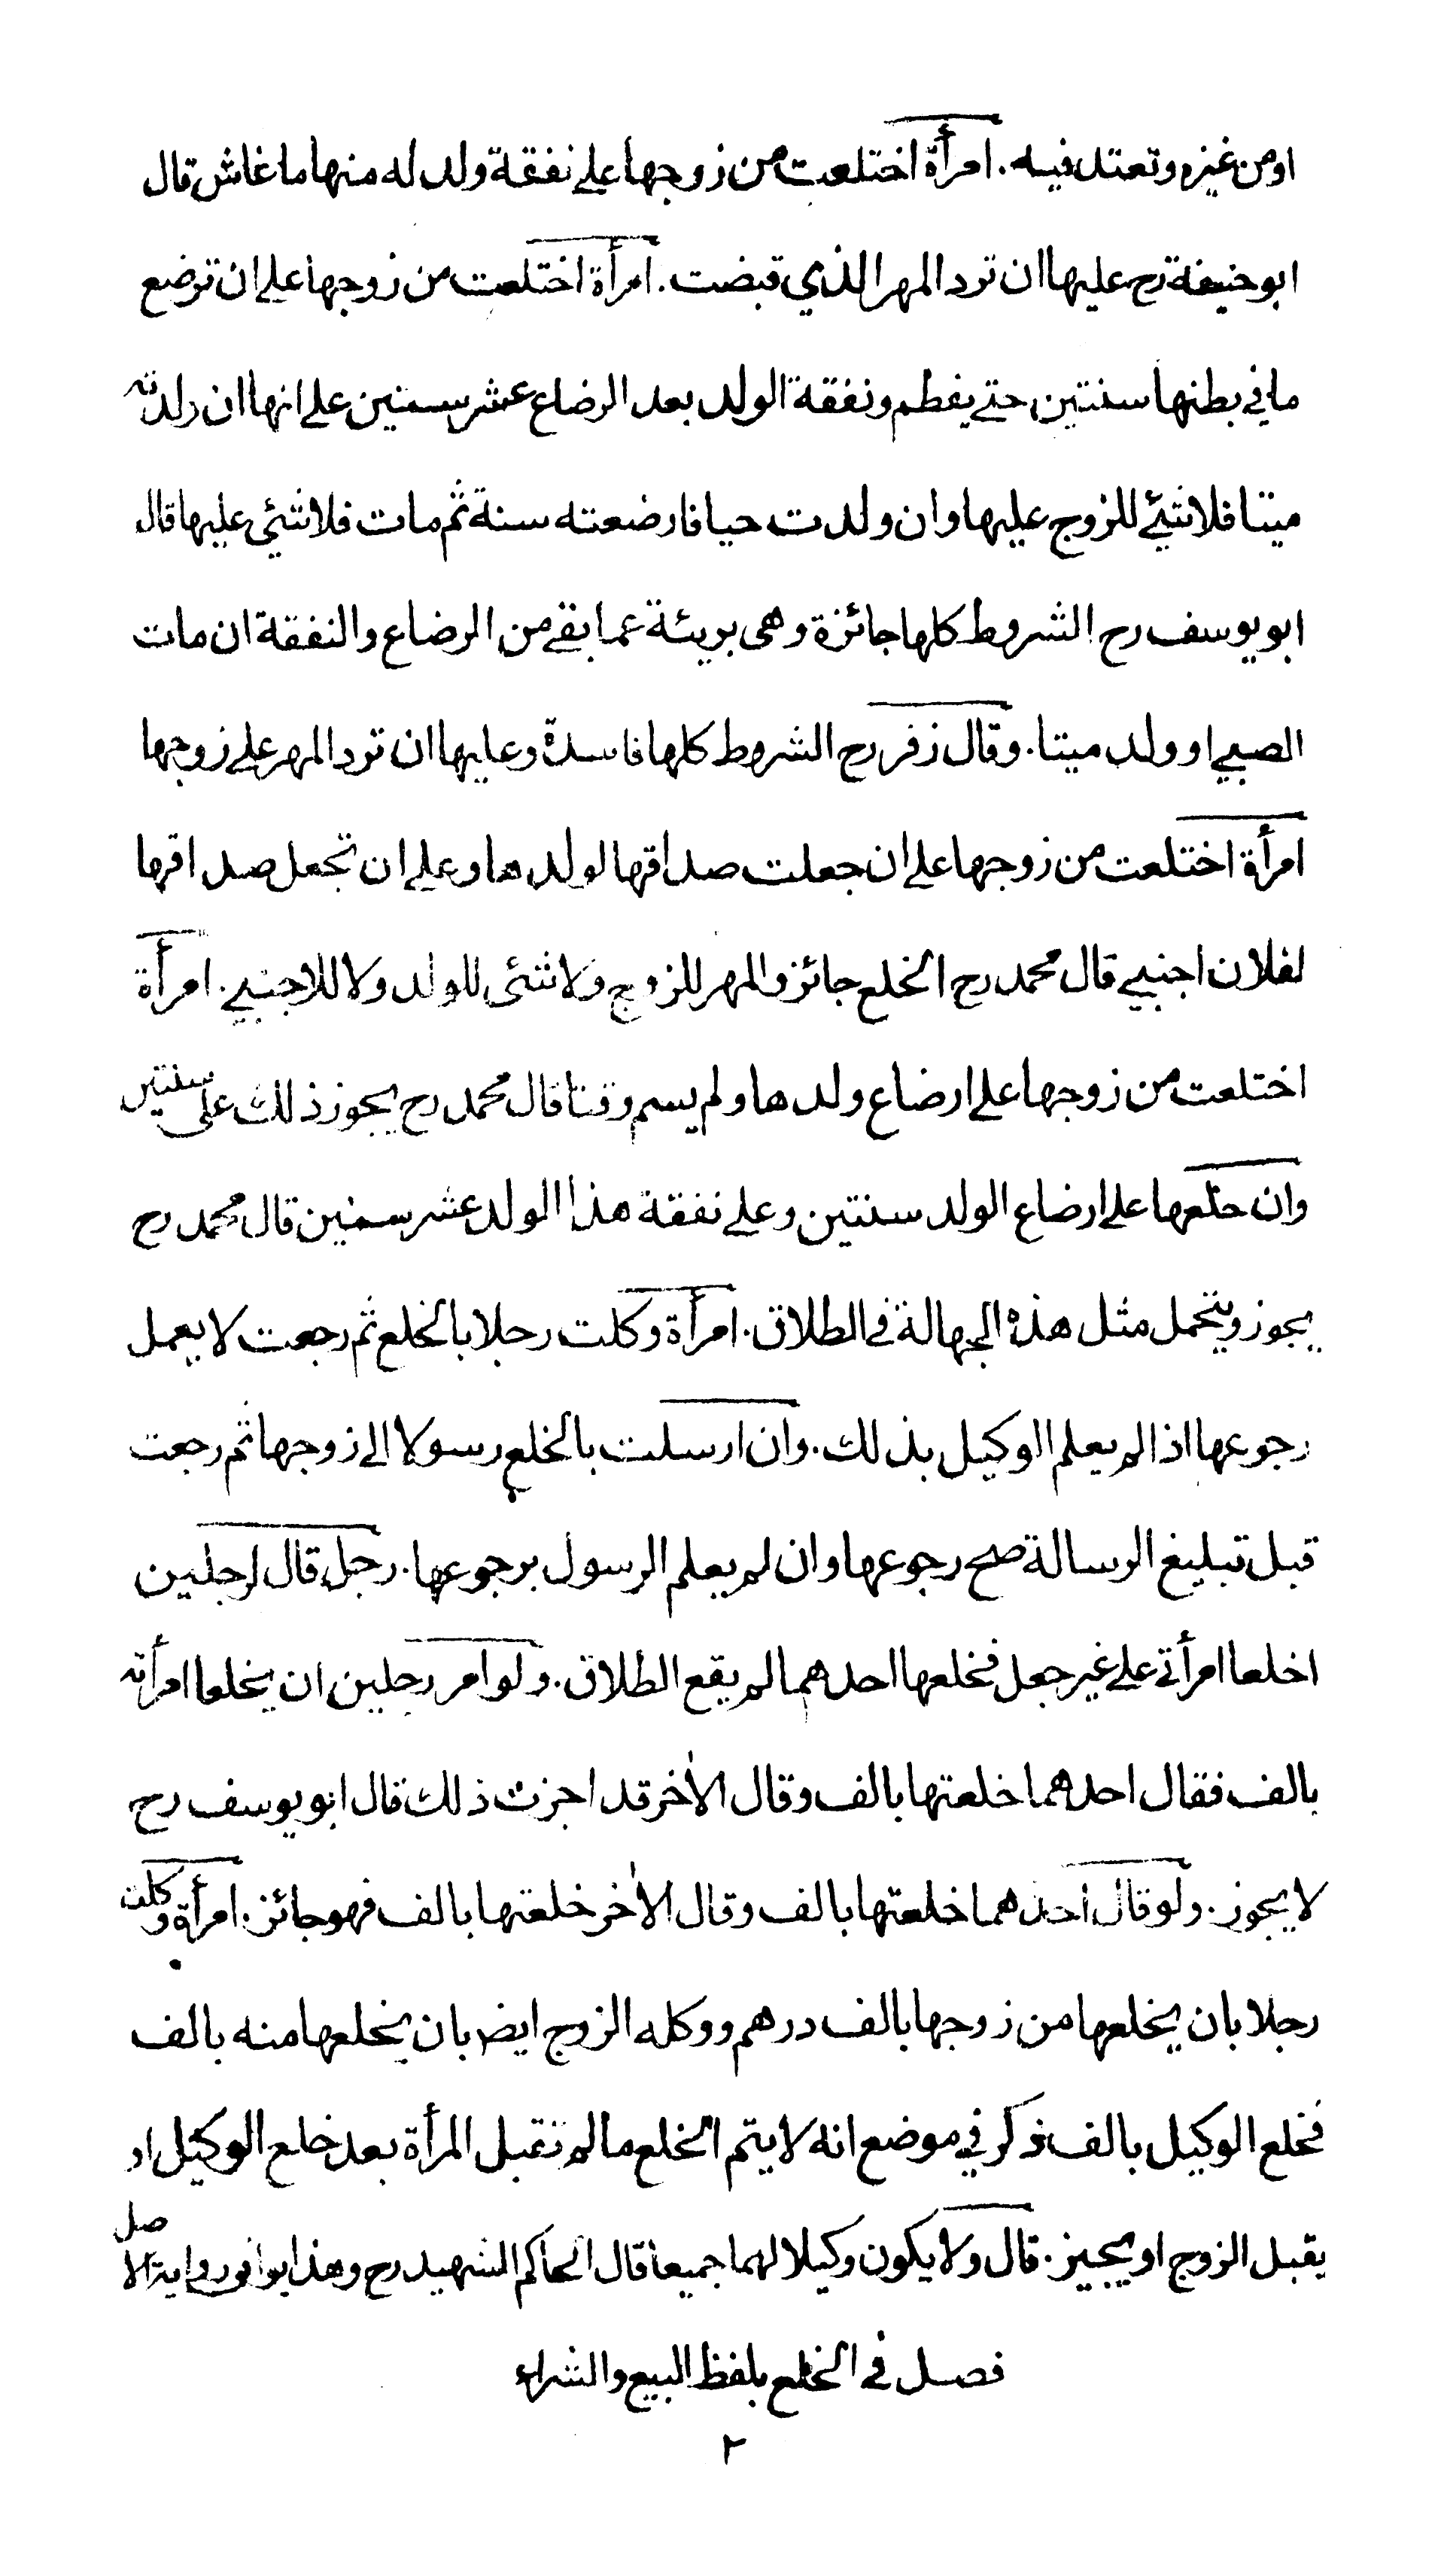 او من غيره وتعتد فيه. امرأة اختلعت من زوجها على نفقة ولد له منها ما عاش قال
ابو حنيفة رح عليها ان ترد المهر الذي قبضت. امرأة اختلعت من زوجها على ان ترضع
ما في بطنها سنتين حتى يفطم ونفقة الولد بعد الرضاع عشر سنين على انها ان ولدته
ميتا فلا شئ للزوج عليها وان ولدت حيا فارضعته سنة ثم مات فلا شئ عليها قال
ابو يوسف رح الشروط كلها جائزة وهى بريئة عما بقى من الرضاع والنفقة ان مات
الصبي او ولد ميتا. وقال زفر رح الشروط كلها فاسدة وعليها ان ترد المهر على زوجها
امرأة اختلعت من زوجها على ان جعلت صداقها لولدها وعلى ان تجعل صداقها
لفلان اجنبي قال محمد رح الخلع جائز والمهر للزوج ولا شئ للولد ولا للاجنبي. امرأة
اختلعت من زوجها على ارضاع ولدها ولم يسم وقتا قال محمد رح يجوز ذلك على سنتين
وان خلعها على ارضاع الولد سنتين وعلى نفقة هذا الولد عشر سنين قال محمد رح
يجوز ويتحمل مثل هذه الجهالة في الطلاق. امرأة وكلت رجلا بالخلع ثم رجعت لا يعمل
رجوعها اذا لم يعلم الوكيل بذلك. وان ارسلت بالخلع رسولا الى زوجها ثم رجعت
قبل تبليغ الرسالة صح رجوعها وان لم يعلم الرسول برجوعها. رجل قال لرجلين
اخلعا امرأتي على غير جعل فخلعها احدهما لم يقع الطلاق. ولو امر رجلين ان يخلعا امرأته
بالف فقال احدهما خلعتها بالف وقال الأخر قد اجزت ذلك قال ابو يوسف رح
لا يجوز. ولو قال احدهما خلعتها بالف وقال الأخر خلعتها بالف فهو جائز. امرأة وكلت
رجلا بان يخلعها من زوجها بالف درهم ووكله الزوج ايض بان يخلعها منه بالف
فخلع الوكيل بالف ذكر في موضع انه لا يتم الخلع ما لم تقبل المرأة بعد خلع الوكيل او
يقبل الزوج او يجيز. قال ولا يكون وكيلا لهما جميعا قال الحاكم الشهيد رح وهذا يوافق رواية الاصل
فصل في الخلع بلفظ البيع والشراء
٢